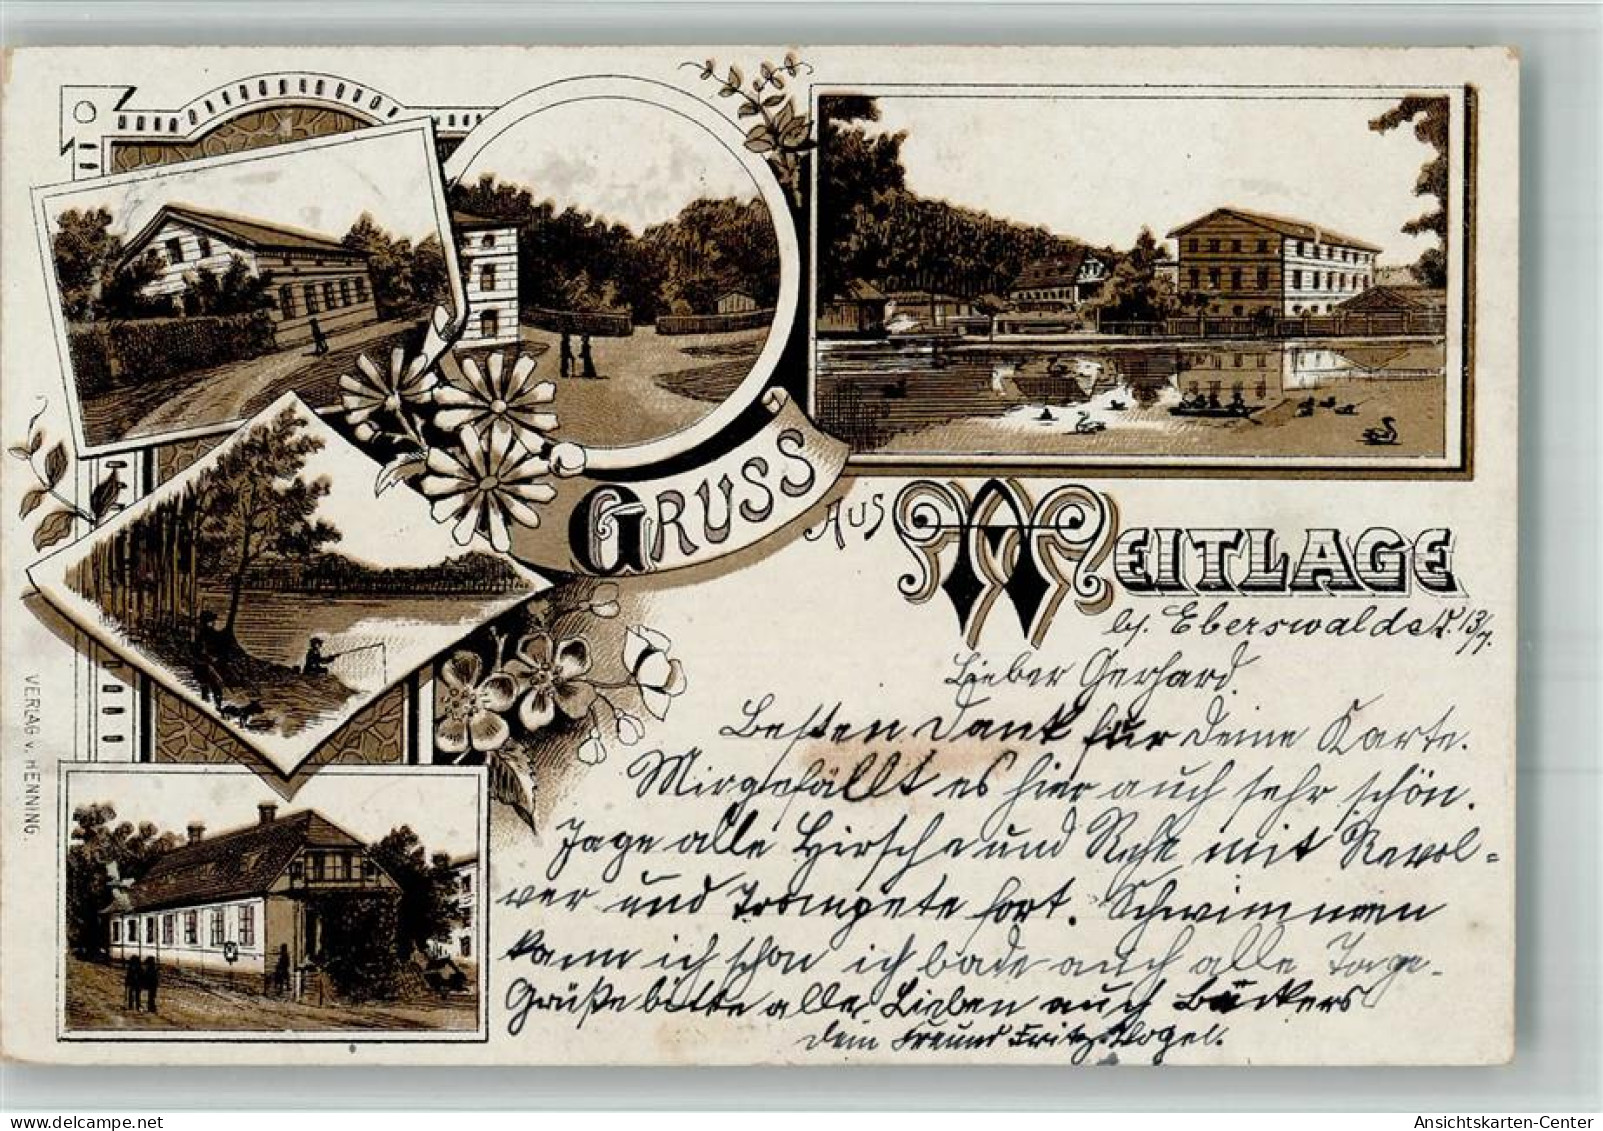 GRUSS AUS WEITLAGE
b/. Eberswalde d. 13/7.
Lieber Gerhard.
Besten Dank für deine Karte.
Mir gefällt es hier auch sehr schön.
Jage alle Hirsche und Rehe mit Revol=
ver und Trompete fort. Schwimmen
kann ich schon ich bade auch alle Tage.
Grüße bitte alle Lieben auch Bäckers
dein Freund Fritz Vogel.
VERLAG v. HENNING.
Ansichtskarten-Center